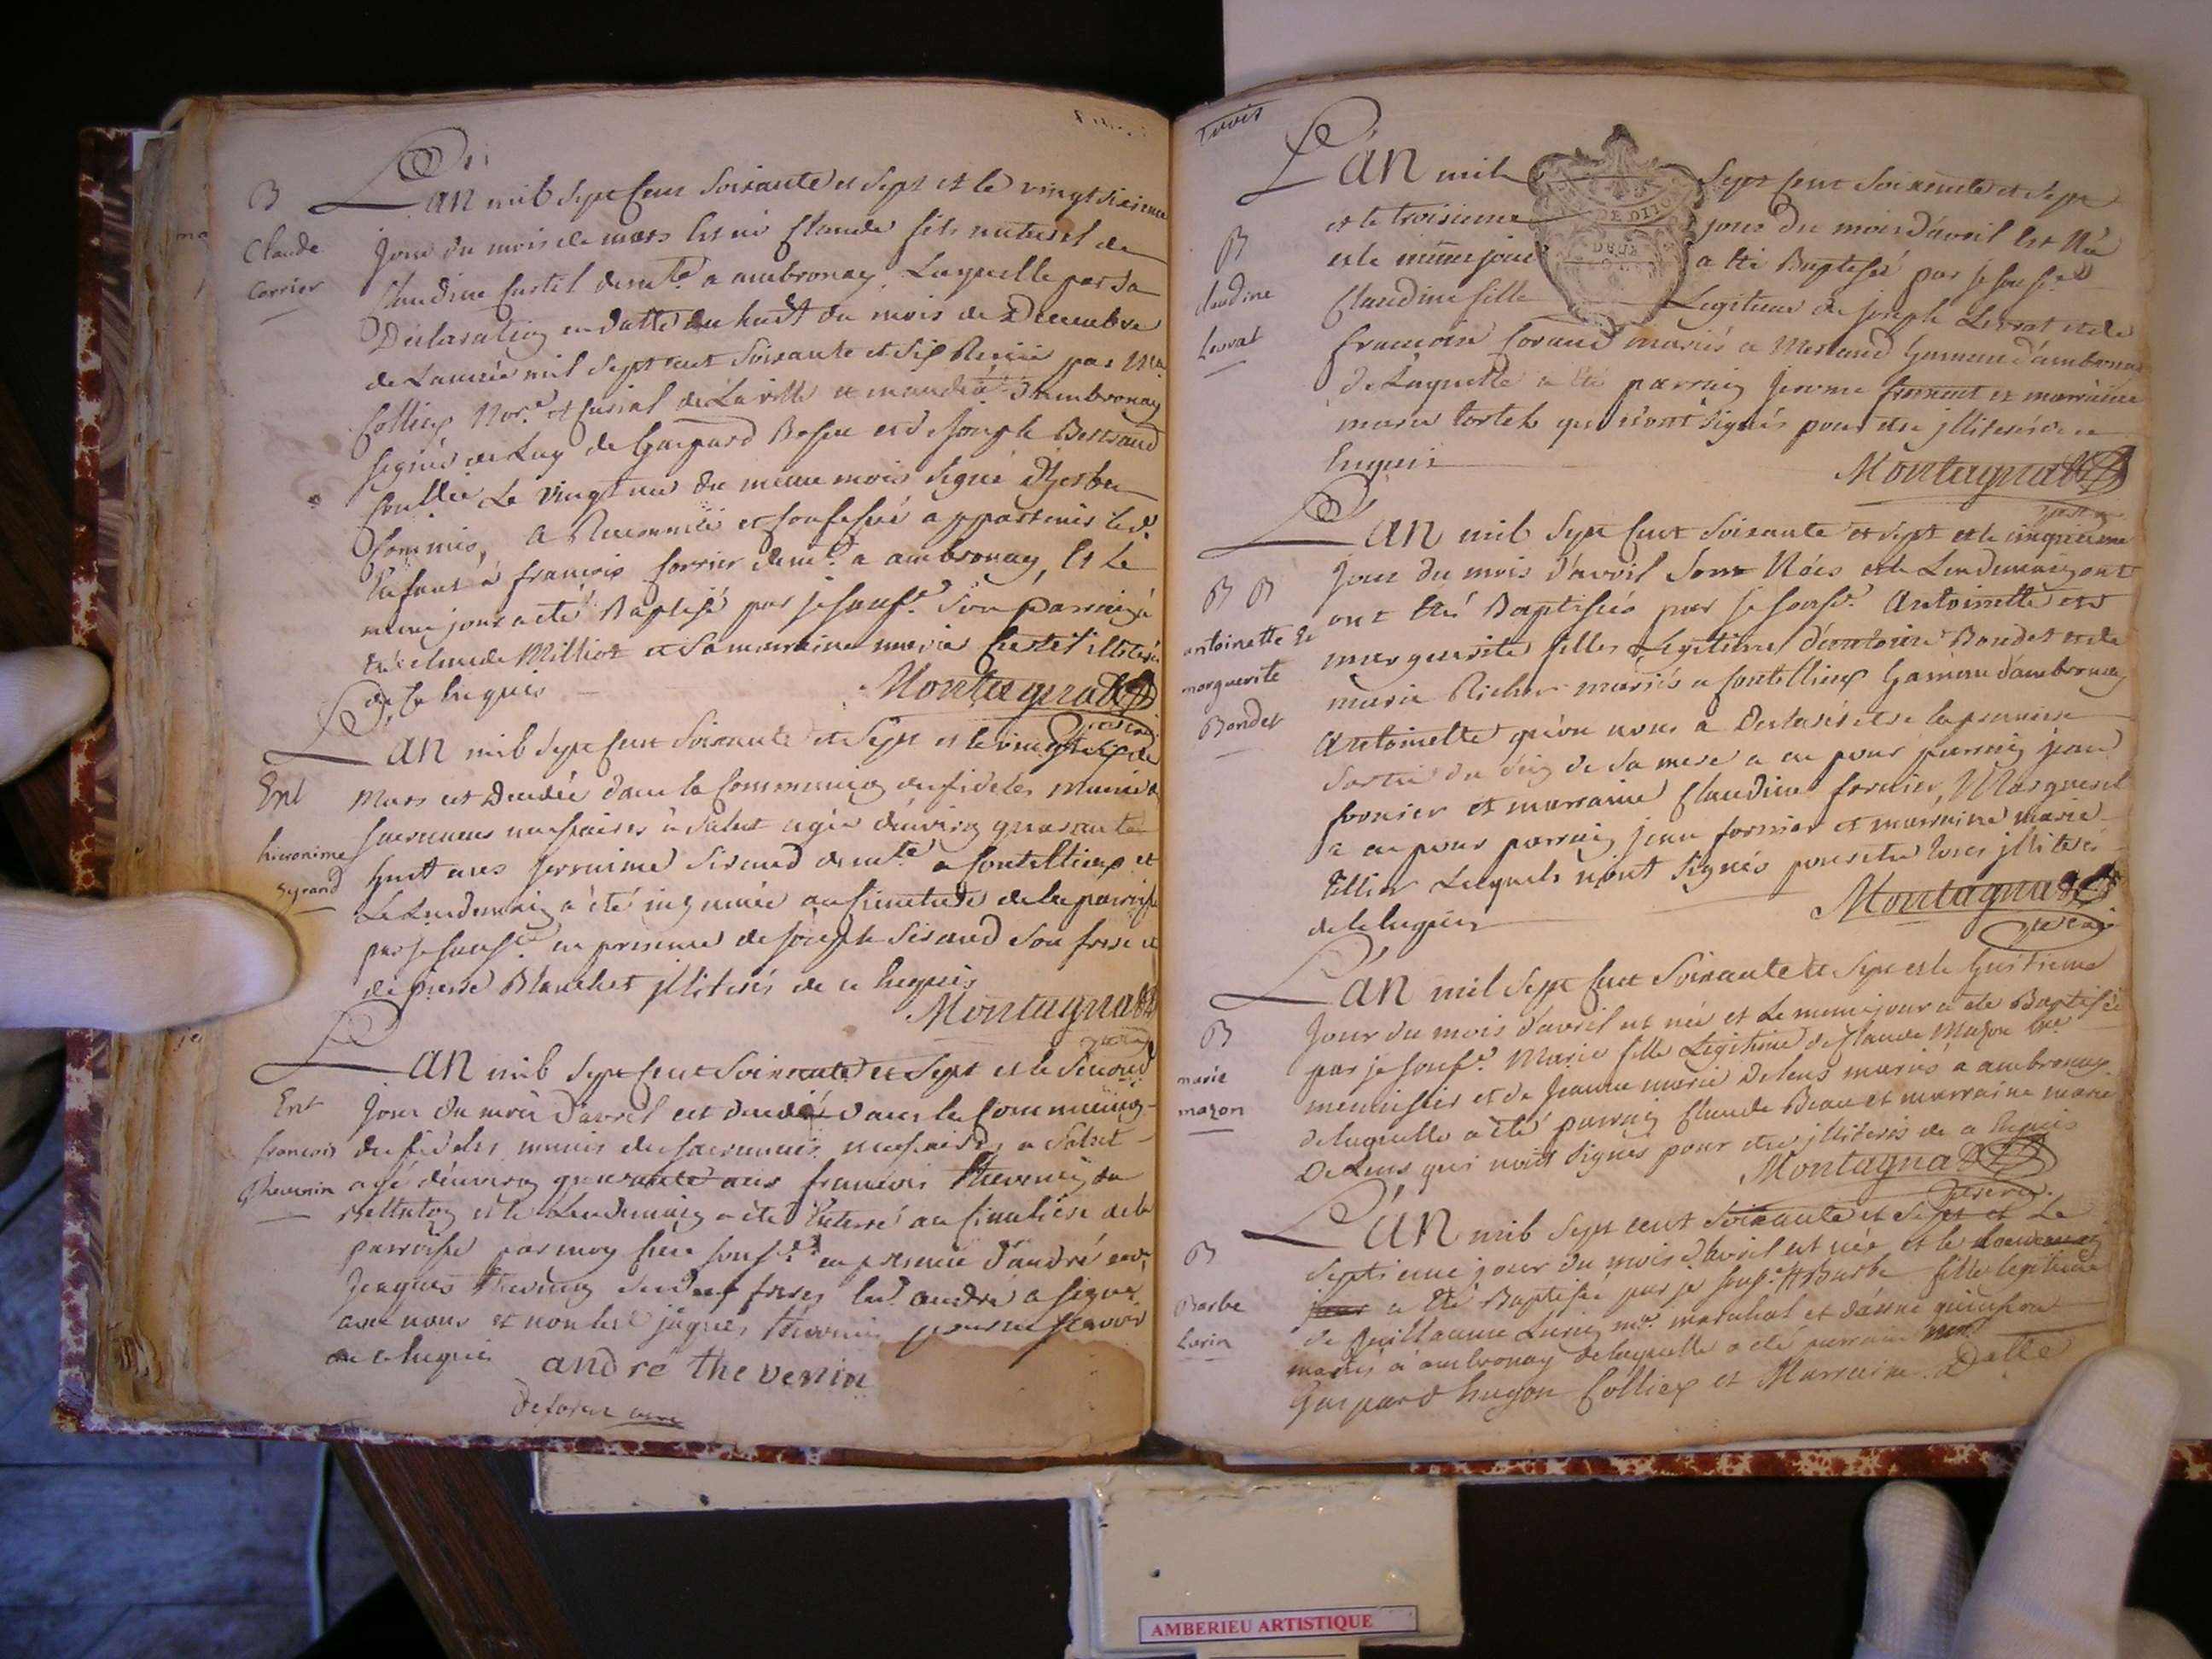 B
Claude
Corrier
L'an mil sept cent soixante et sept et le vingt sixieme
jour du mois de mars est né Claude fils naturel de
Claudine Curtil demte a ambronay. Laquelle par sa
Declaration en datte du huit du mois de Decembre
de L'année mil sept cent soixante et six Recüe par Me
Colliex Nore et Curial de La ville et mande d'ambronay
signée de Luy de Gaspard et de Joseph Bertrand
le vingt du meme mois signé
Commis, a Reconnu et Confessé appartenir led.
Enfant à francois Corrier demt a ambronay, Et Le
meme jour a été Baptisé par je sousd. Son parrain à
été claude Milliot et Sa marraine marie Curtil illiterés
de ce Enquis
Montagnat
Ent
hieronime
Syrand
L'an mil sept cent soixante et sept et le vingt six de
mars est Decedée dans la Communion des fideles munie des
sacremens necessaires à Salut agée d'environ quarante
huit ans Jerruime Siraud demte a Contelliex et
Le Lendemain à été inhumée au Cimetiere de la paroisse
par je sousd. en presence de Joseph Siraud son frere et
de pierre Blanchet jlliterés de ce Enquis
Montagnat
Ent
francois
Thevenin
L'an mil sept cent soixante et sept et le second
jour du mois d'avril est decedé dans la Communion
des fideles munis des sacremens necessaires a Salut
agé d'environ quarante ans francois Thevenin du
et le Lendemain a été Enterré au Cimetiere de la
parroisse par moy Curé sousd. en presence d'andré et de
Jacques thevenin ses deux freres led. andré a signé
avec nous et non led jaques thevenin pour ne sçavoir
de ce Enquis
andré thevenin
Deforest curé
Trois
B
claudine
Levrat
L'an mil sept cent soixante et sept
et le troisieme jour du mois d'avril est Née
et le même jour a été Baptisée par je sousd.
Claudine fille Legitime de joseph Levrat et de
francoise Coraud mariés a Merland hameau d'ambronay
de Laquelle a été parrain jerome froment et marraine
marie tortel qui n'ont signés pour etre jlliterés de ce
Enquis
Montagnat
B B
antoinette et
marguerite
Bondet
L'an mil sept cent soixante et sept et le cinquieme
jour du mois d'avril sont Nées et le Lendemain ont
ont été Baptisées par je sousd. Antoinette et
marguerite filles Legitimes d'antoine Bondet et de
marie Richer mariés a Contelliex hameau d'ambronay
Antoinette qu'on nous a Declarés etre la premiere
sortie du sein de sa mere a eu pour parrain jean
fornier et marraine Claudine fornier, Marguerit
a eu pour parrain jean fornier et marraine marie
Tillier Lesquels n'ont signés pour etre tous jlliterés
de ce Enquis
Montagnat
B
marie
mazon
L'an mil sept cent soixante et sept et le huitieme
jour du mois d'avril est née et Le meme jour a été Baptisée
par je sousd. Marie fille Legitime de Claude Mazon Me
menuisier et de jeanne marie Deleus mariés à ambronay
de laquelle a été parrain Claude Beau et marraine marie
Deleus qui n'ont signés pour etre jlliterés de ce Enquis
Montagnat
B
Barbe
Lurin
L'an mil sept cent soixante et sept et Le
septieme jour du mois d'avril est née et le
jour a été Baptisée par je sousd. Barbe fille Legitime
de Guillaume Lurin me. marechal et d'anne
mariés à ambronay de laquelle a été parrain
Gaspard hugon Colliex et Marraine Delle
CHLLE DE DIJON
DEUX
AMBERIEU ARTISTIQUE